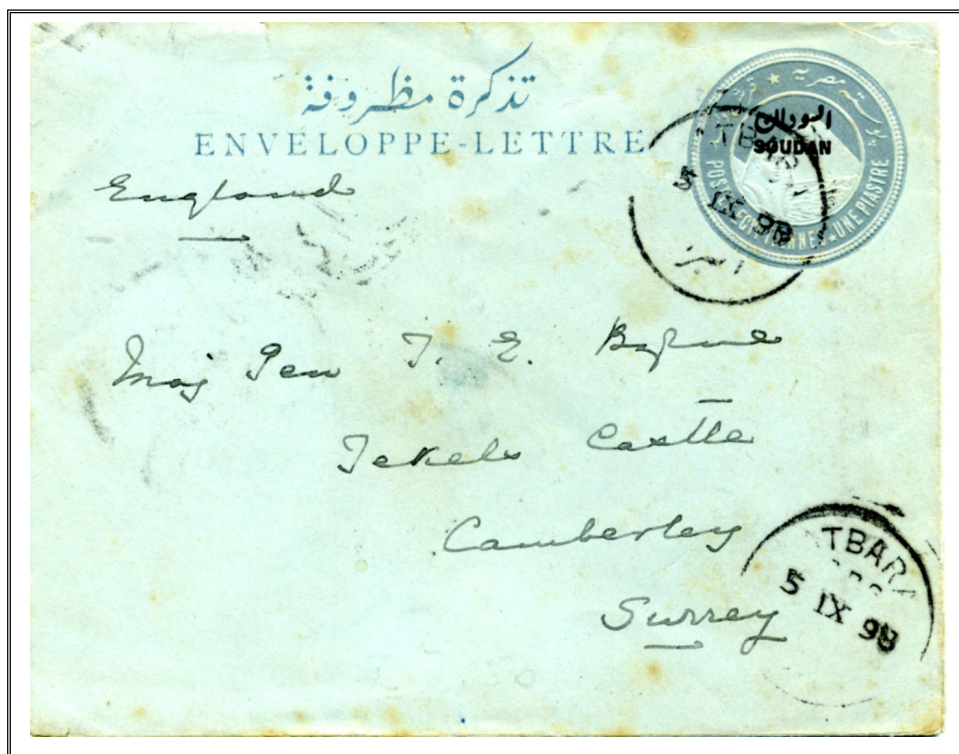 تذكرة مظروفة
ENVELOPPE-LETTRE
بوستة مصرية
السودان
SOUDAN
POSTES EGYPTIENNES ★ UNE PIASTRE
5 IX 98
England
Maj Gen T. E. Byrne
Tekels Castle
Camberley
Surrey
ATBARA
5 IX 98